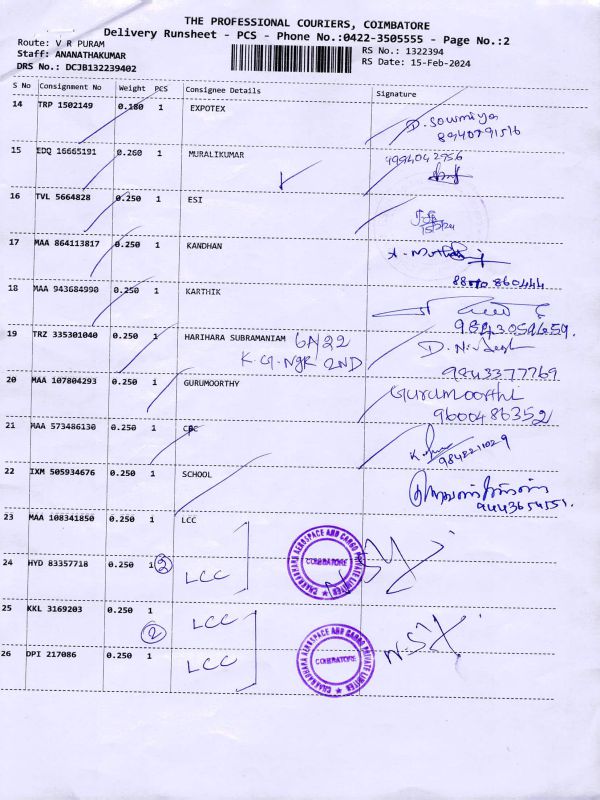 THE PROFESSIONAL COURIERS, COIMBATORE
Delivery Runsheet - PCS - Phone No.:0422-3505555 - Page No.:2
Route: V R PURAM
Staff: ANANATHAKUMAR
DRS No.: DCJB132239402
RS No.: 1322394
RS Date: 15-Feb-2024
S No Consignment No Weight PCS Consignee Details Signature
14 TRP 1502149 0.180 1 EXPOTEX
D. Sowmiya
8940791516
15 EDQ 16665191 0.260 1 MURALIKUMAR
4994042956
16 TVL 5664828 0.250 1 ESI
15/2/24
17 MAA 864113817 0.250 1 KANDHAN
18 MAA 943684990 0.250 1 KARTHIK
19 TRZ 335301040 0.250 1 HARIHARA SUBRAMANIAM 6A/22
K.G.NGR 2ND
9843377769
20 MAA 107804293 0.250 1 GURUMOORTHY
GURUMOORTHI
9600486352
21 MAA 573486130 0.250 1
9842211029
22 IXM 505934676 0.250 1 SCHOOL
9443654551.
23 MAA 108341850 0.250 1 LCC
24 HYD 83357718 0.250 1 2
LCC
CHAKRADHARA AEROSPACE AND CARGO PRIVATE LIMITED
COIMBATORE
25 KKL 3169203 0.250 1
LCC
2
26 DPI 217086 0.250 1
LCC
CHAKRADHARA AEROSPACE AND CARGO PRIVATE LIMITED
COIMBATORE